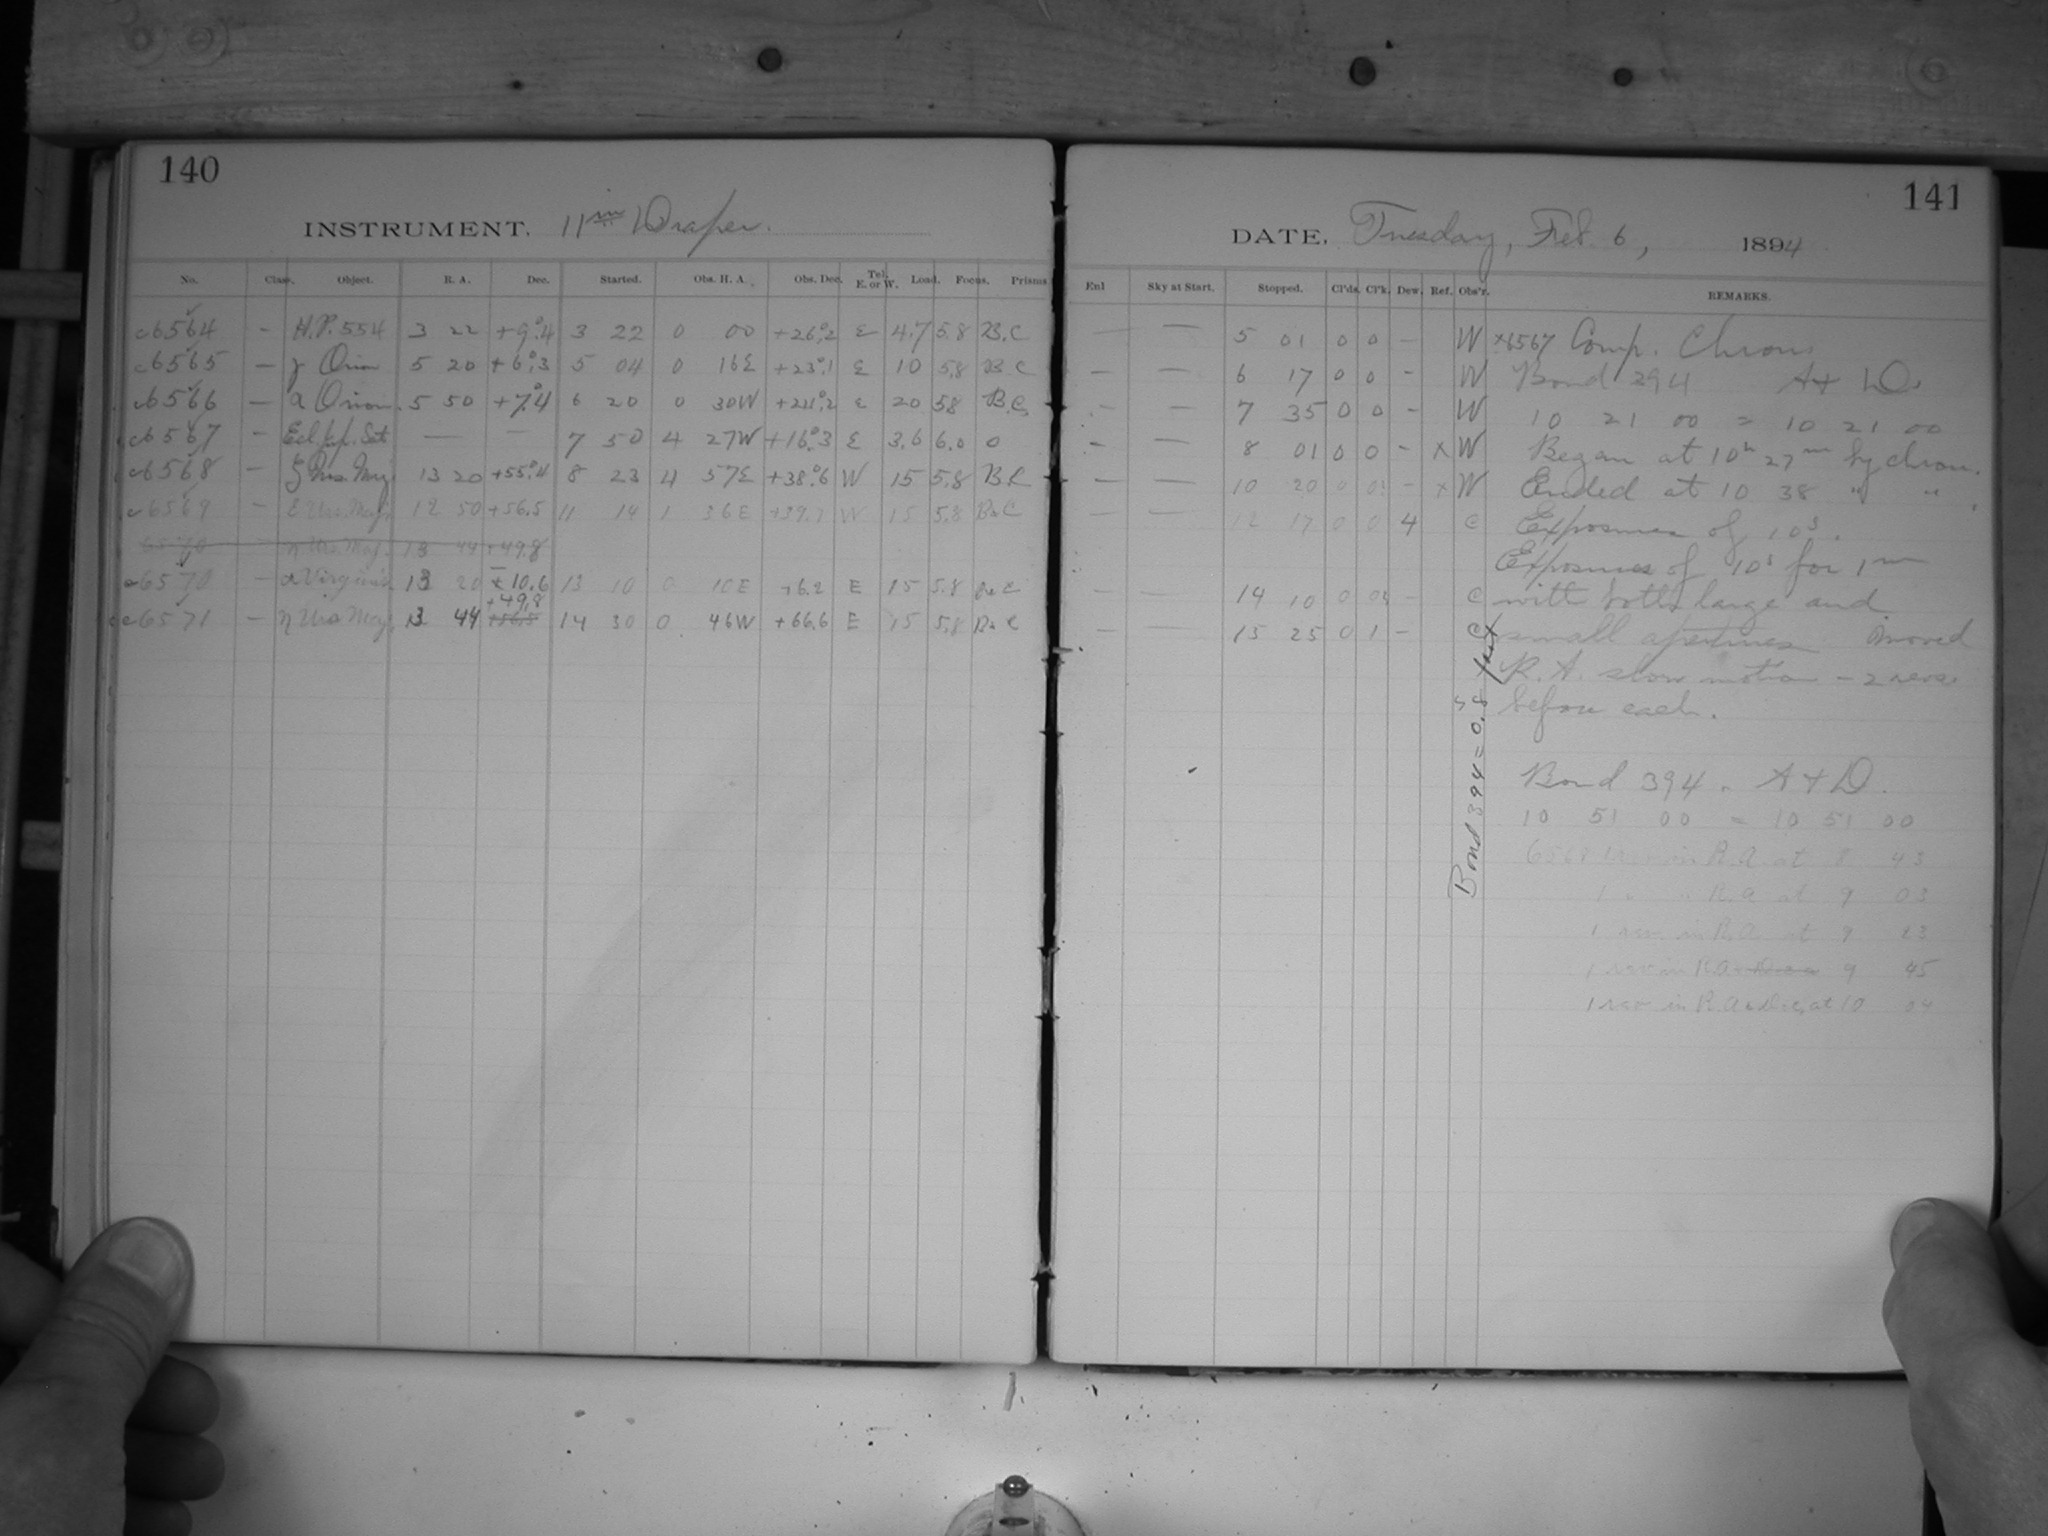 140
INSTRUMENT. 11 in Draper.
No. Class. Object. R. A. Dec. Started. Obs. H. A. Obs. Dec. Tel. E. or W. Load. Focus. Prisms
c6564 – H.P. 554 3 22 +9°.4 3 22 0 00 +26°.2 E 4.7 5.8 B.C
c6565 – γ Orion 5 20 +6°.3 5 04 0 16E +23°.1 E 10 5.8 B C
c6566 – α Orion. 5 50 +7°.4 6 20 0 30W +24°.2 E 20 58 B.C
c6567 – Ecl. Jup. Sat — — 7 50 4 27W +16°.3 E 3.6 6.0 0
c6568 – ζ Urs. Maj. 13 20 +55°.4 8 23 4 57E +38°.6 W 15 5.8 B C
c6569 – ε Urs. Maj. 12 50 +56.5 11 14 1 36E +39.7 W 15 5.8 B&C
6570 – η Urs. Maj. 13 44 +49.8
c6570 – α Virginis 13 20 –10.6 13 10 0 10E +6.2 E 15 5.8 B&C
+49.8
c6571 – η Urs Maj. 13 44 +56.5 14 30 0 46W +66.6 E 15 5.8 B&C
141
DATE. Tuesday, Feb. 6, 1894
Enl Sky at Start. Stopped. Cl'ds. Cl'k. Dew. Ref. Obs'r. REMARKS.
— — 5 01 0 0 – W ×6567 Comp. Chrons
— — 6 17 0 0 – W Bond 394 A + D.
— — 7 35 0 0 – W 10 21 00 = 10 21 00
— — 8 01 0 0 – × W Began at 10h 27m by chron.
— — 10 20 0 0 – × W Ended at 10 38 " "
— — 12 17 0 0 4 C Exposures of 10s.
Exposures of 10s for 1m
— — 14 10 0 0 – C with both large and
— — 15 25 0 1 – C small apertures moved
R. A. slow motion – 2 revs.
before each.
Bond 394 = 0.8s fast
Bond 394 = A + D.
10 51 00 = 10 51 00
6568 1 rev in R.A at 8 43
1 " " R.A at 9 03
1 rev. in R.A at 9 23
1 rev in R.A 9 45
1 rev in R.A & Dec. at 10 04